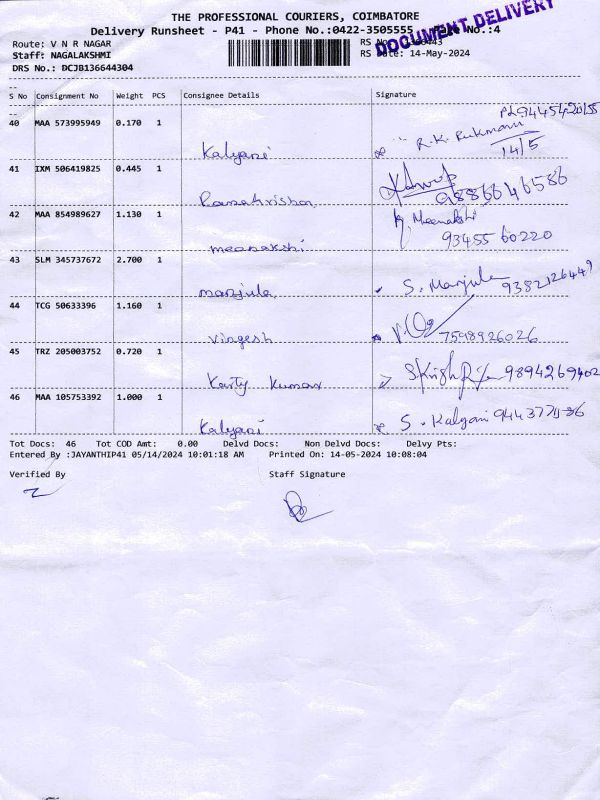 THE PROFESSIONAL COURIERS, COIMBATORE
Delivery Runsheet - P41 - Phone No.:0422-3505555 Page No.:4
DOCUMENT DELIVERY
Route: V N R NAGAR
Staff: NAGALAKSHMI RS Date: 14-May-2024
DRS No.: DCJB136644304
S No Consignment No Weight PCS Consignee Details Signature
40 MAA 573995949 0.170 1
Kalyani R.K. Rukmani
14/5
41 IXM 506419825 0.445 1
Ramakrishna 9886646586
42 MAA 854989627 1.130 1
meenakshi Meenakshi
93455 60220
43 SLM 345737672 2.700 1
manjula S. Manjula 9382126449
44 TCG 50633396 1.160 1
vingesh 7598926026
45 TRZ 205003752 0.720 1
Karty Kumar 9894269402
46 MAA 105753392 1.000 1
Kalyani S. Kalyani
Tot Docs: 46 Tot COD Amt: 0.00 Delvd Docs: Non Delvd Docs: Delvy Pts:
Entered By :JAYANTHIP41 05/14/2024 10:01:18 AM Printed On: 14-05-2024 10:08:04
Verified By Staff Signature